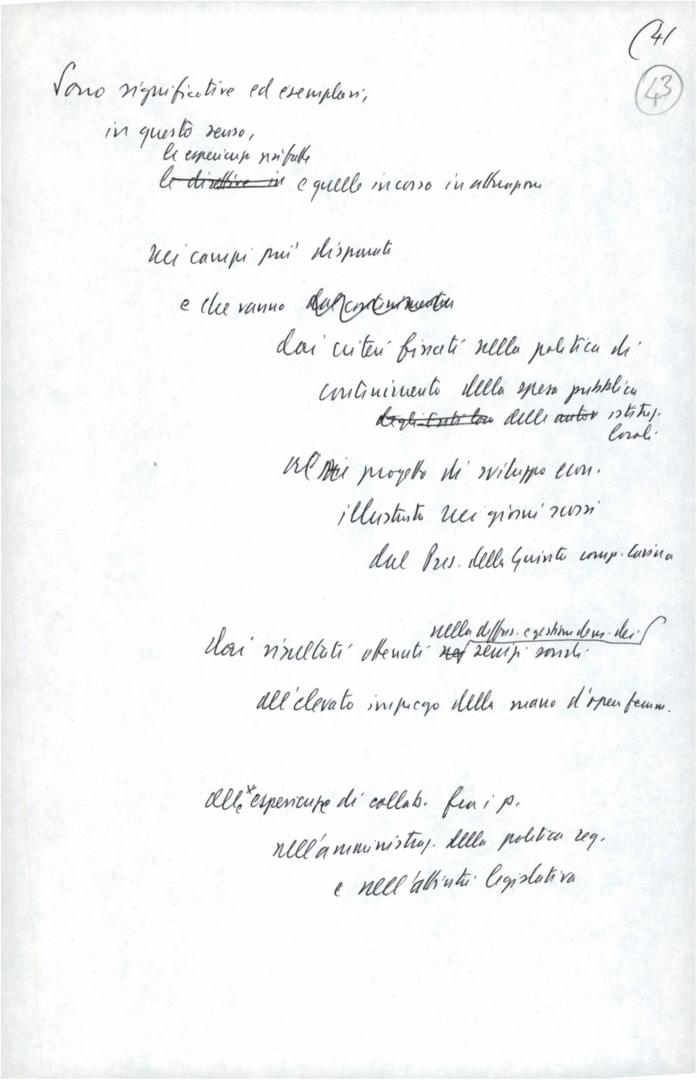 (41
43
Sono significative ed esemplari,
in questo senso,
le esperienze
le direttive in e quelle in corso in attuazione
nei campi più disparati
e che vanno dal contenimento
dai criteri fissati nella politica di
contenimento della spesa pubblica
degli Enti loc delle autor istituz.
locali.
al progetto di sviluppo econ.
illustrato nei giorni scorsi
dal Pres. della Giunta comp. Turina
nella diffus. e gestione dem. dei
dai risultati ottenuti nei servizi sociali
all'elevato impiego della mano d'opera femm.
alle* esperienze di collab. fra i p.
nell'amministraz. della politica reg.
e nell'attività legislativa